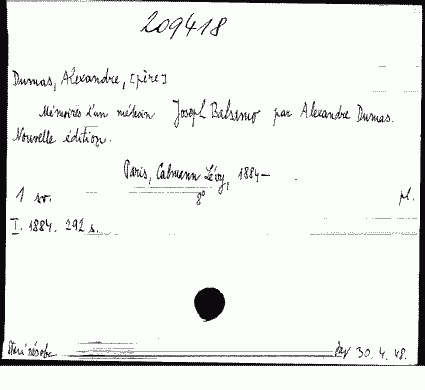 209418
Dumas, Alexandre, [père]
Mémoires d'un médecin Joseph Balsamo par Alexandre Dumas.
Nouvelle édition.
Paris, Calmann Lévy, 1884-
1 sv. 8° pl.
I. 1884. 292 s.
30. 4. 48.